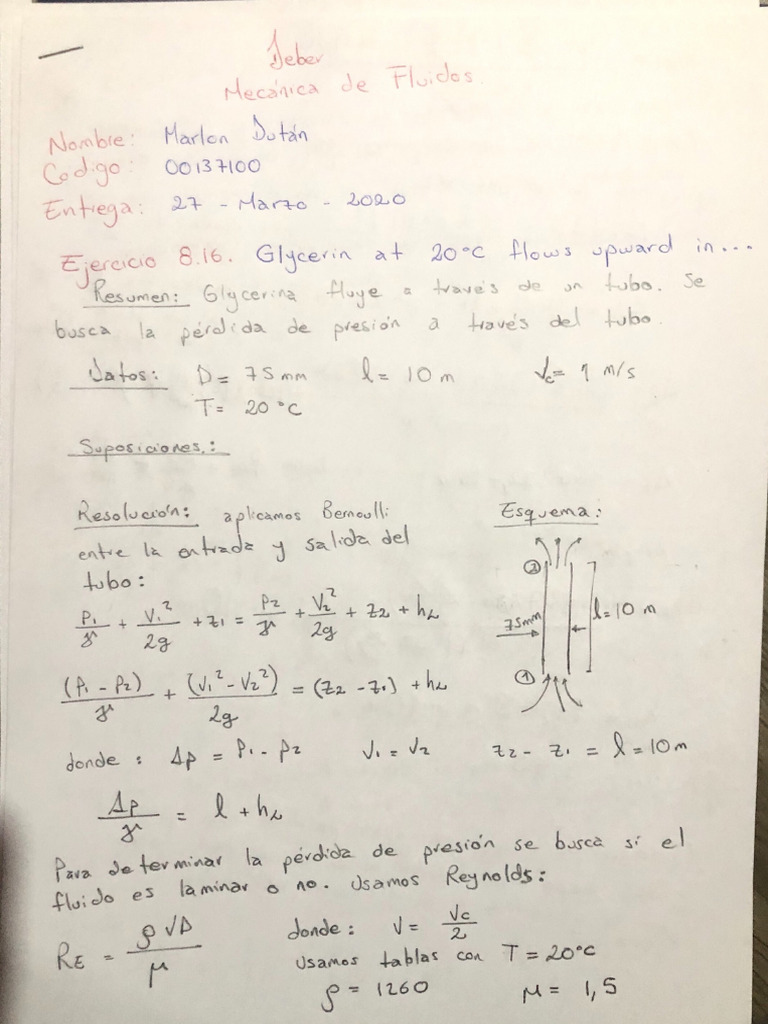 Deber
Mecánica de Fluidos.
Nombre: Marlon Dután
Codigo: 00137100
Entrega: 27 - Marzo - 2020
Ejercicio 8.16. Glycerin at 20°C flows upward in...
Resumen: Glycerina fluye a través de un tubo. Se
busca la pérdida de presión a través del tubo.
Datos: D = 75 mm l = 10 m Vc = 1 m/s
T = 20 °C
Suposiciones.:
Resolución: aplicamos Bernoulli
entre la entrada y salida del
tubo:
Esquema:
②
75mm
l = 10 m
①
P₁/γ + V₁²/2g + z₁ = P₂/γ + V₂²/2g + z₂ + hL
(P₁ - P₂)/γ + (V₁² - V₂²)/2g = (z₂ - z₁) + hL
donde: Δp = P₁ - P₂ V₁ = V₂ z₂ - z₁ = l = 10 m
Δp/γ = l + hL
Para determinar la pérdida de presión se busca si el
fluido es laminar o no. Usamos Reynolds:
RE = ρVD/μ
donde: V = Vc/2
Usamos tablas con T = 20°C
ρ = 1260 μ = 1,5